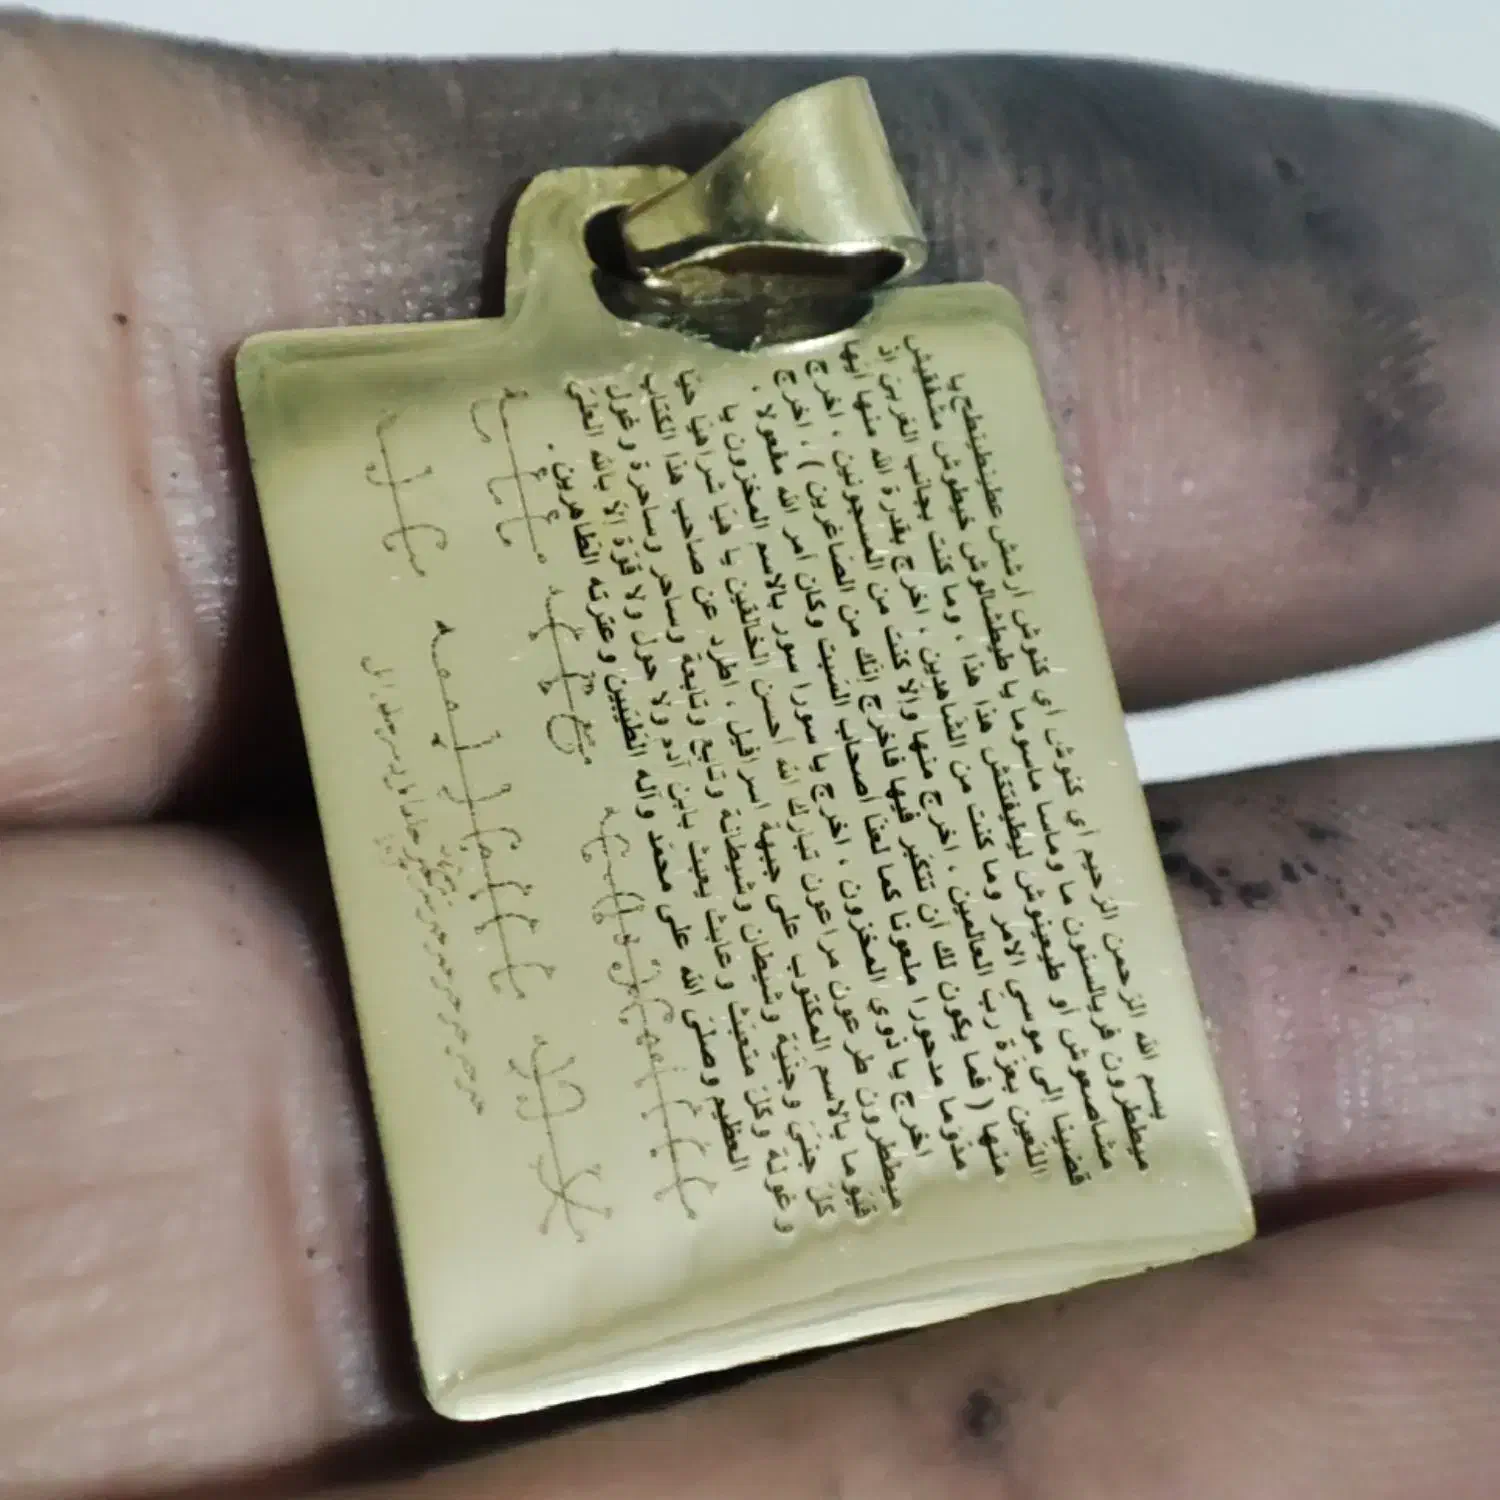 بسم الله الرّحمن الرّحيم أي كنوش أي كنوش ارشش عطنيطنيطح يا
ميططرون فريالسنون ما وماسا ماسوما يا طيطشالوش خيطوش مشفقيش
مشاصعوش أو طيعينوش ليطيفتكش هذا هذا ، وما كنت بجانب الغربيّ إذ
قضينا إلى موسى الأمر وما كنت من الشّاهدين ، اخرج بقدرة الله منها أيّها
اللّعين بعزّة ربّ العالمين ، اخرج منها وإلّا كنت من المسجونين ، اخرج
منها ( فما يكون لك أن تتكبّر فيها فاخرج إنّك من الصّاغرين ) ، اخرج
مذوما مدحورا ملعونا كما لعنّا أصحاب السّبت وكان أمر الله مفعولا .
اخرج يا ذوي المخزون ، اخرج يا سورا سور بالاسم المخزون يا
ميططرون طرعون مراعون تبارك الله أحسن الخالقين يا هيا شراهيا حيّا
قيّوما بالاسم المكتوب على جبهة اسرافيل ، اطرد عن صاحب هذا الكتاب
كلّ جنّي وجنّيّة وشيطان وشيطانة وتابع وتابعة وساحر وساحرة وغول
وغولة وكلّ متعبّث وعابث يعبث بابن آدم ولا حول ولا قوّة إلّا بالله العليّ
العظيم وصلّى الله على محمّد وآله الطّيّبين وعترته الطّاهرين .